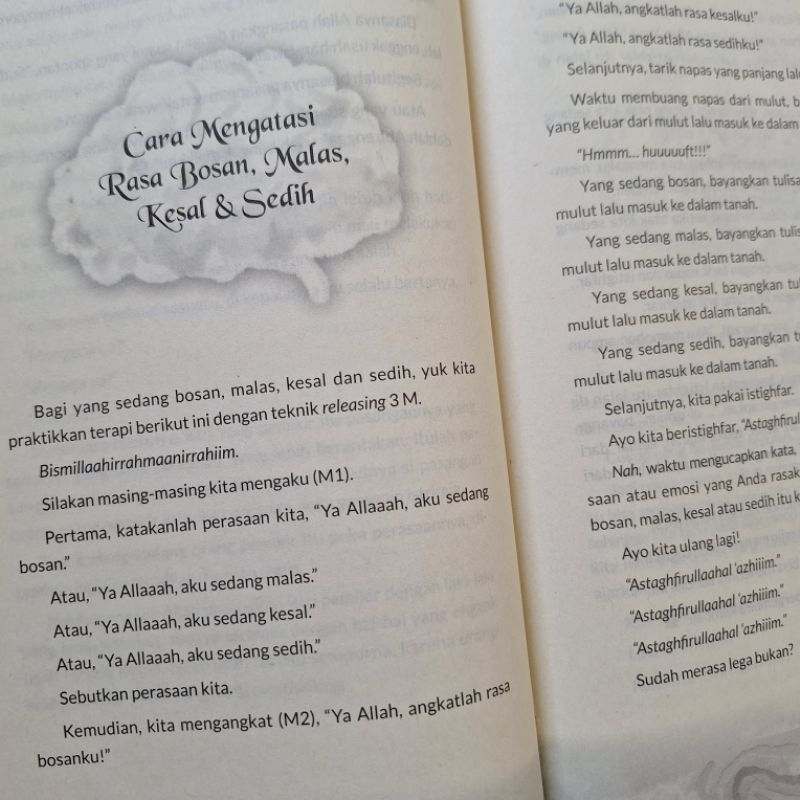 Cara Mengatasi
Rasa Bosan, Malas,
Kesal & Sedih
Bagi yang sedang bosan, malas, kesal dan sedih, yuk kita
praktikkan terapi berikut ini dengan teknik releasing 3 M.
Bismillaahirrahmaanirrahiim.
Silakan masing-masing kita mengaku (M1).
Pertama, katakanlah perasaan kita, “Ya Allaaah, aku sedang
bosan.”
Atau, “Ya Allaaah, aku sedang malas.”
Atau, “Ya Allaaah, aku sedang kesal.”
Atau, “Ya Allaaah, aku sedang sedih.”
Sebutkan perasaan kita.
Kemudian, kita mengangkat (M2), “Ya Allah, angkatlah rasa
bosanku!”
“Ya Allah, angkatlah rasa kesalku!”
“Ya Allah, angkatlah rasa sedihku!”
Selanjutnya, tarik napas yang panjang
Waktu membuang napas dari mulut,
yang keluar dari mulut lalu masuk ke dalam
“Hmmm... huuuuuft!!!”
Yang sedang bosan, bayangkan
mulut lalu masuk ke dalam tanah.
Yang sedang malas, bayangkan
mulut lalu masuk ke dalam tanah.
Yang sedang kesal, bayangkan
mulut lalu masuk ke dalam tanah.
Yang sedang sedih, bayangkan
mulut lalu masuk ke dalam tanah.
Selanjutnya, kita pakai istighfar.
Ayo kita beristighfar,
Nah, waktu mengucapkan kata,
saan atau emosi yang Anda
bosan, malas, kesal atau sedih itu
Ayo kita ulang lagi!
“Astaghfirullaahal ‘azhiiim.”
“Astaghfirullaahal ‘azhiiim.”
“Astaghfirullaahal ‘azhiiim.”
Sudah merasa lega bukan?